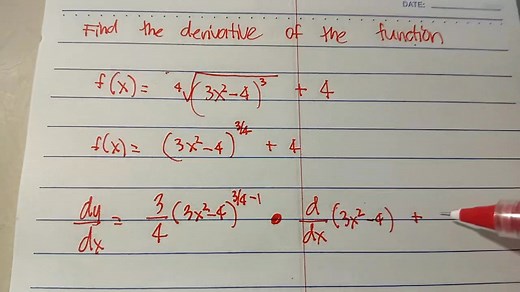 DATE:
Find the derivative of the function
f(x) = ⁴√(3x²-4)³ + 4
f(x) = (3x²-4)^3/4 + 4
dy/dx = 3/4 (3x²-4)^3/4-1 • d/dx (3x²-4) +